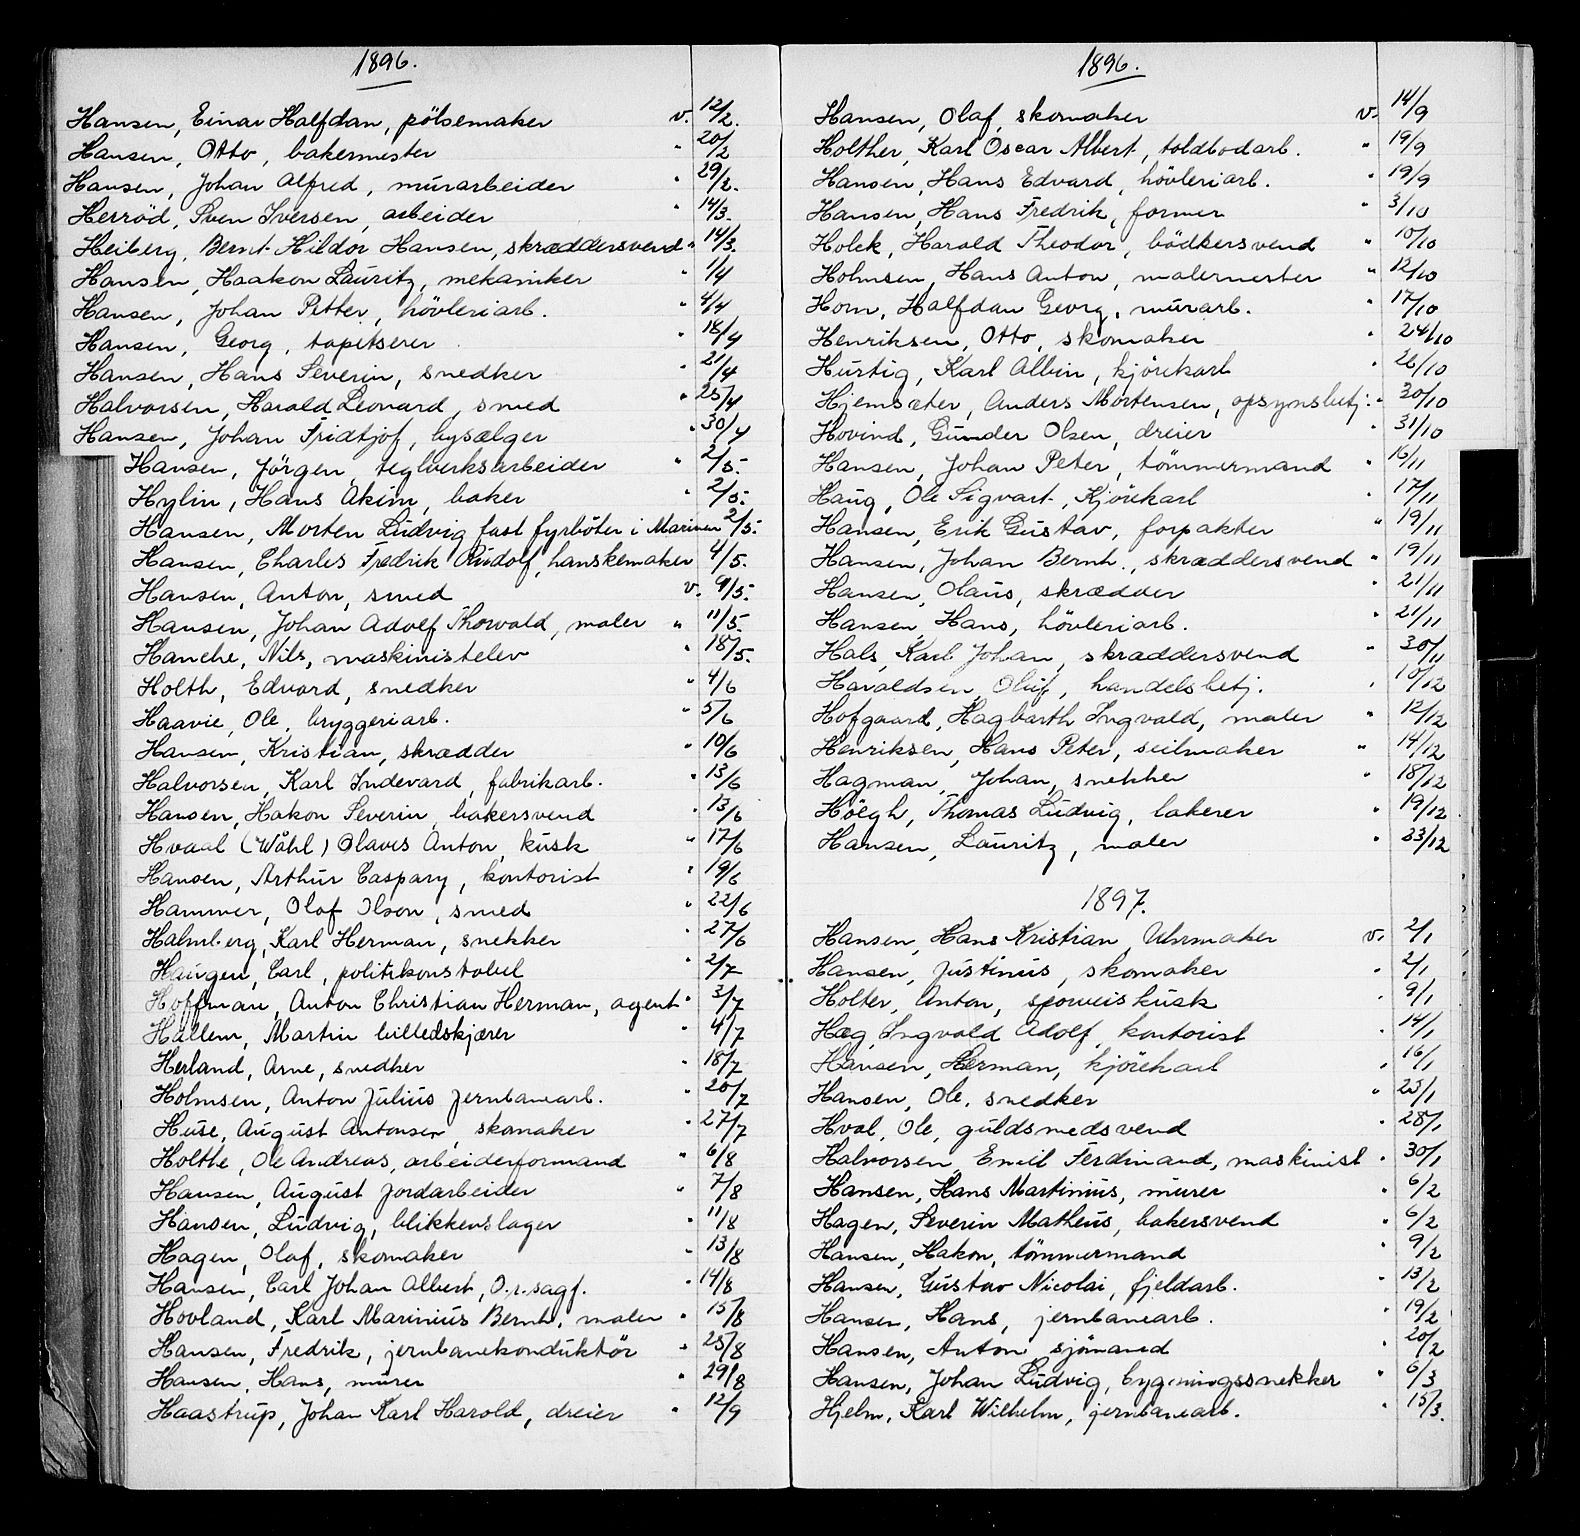 1896.
Hansen, Einar Halfdan, pölsemaker v. 12/2.
Hansen, Otto, bakermester " 20/2
Hansen, Johan Alfred, murarbeider " 29/2.
Herröd, Sven Iversen, arbeider " 14/3.
Heiberg, Bernt Hildor Hansen, skræddersvend " 14/3.
Hansen, Haakon Lauritz, mekaniker " 1/4
Hansen, Johan Petter, hövleriarb. " 4/4
Hansen, Georg, tapetserer " 18/4
Hansen, Hans Severin, snedker " 21/4
Halvorsen, Harald Leonard, smed " 25/4
Hansen, Johan Fridtjof, bysælger " 30/4
Hansen, Jörgen, teglverksarbeider " 2/5.
Hylin, Hans Akim, baker " 2/5.
Hansen, Morten Ludvig fast fyrböter i Marinen 2/5.
Hansen, Charles Fredrik Rudolf, hanskemaker 4/5.
Hansen, Anton, smed v. 9/5.
Hansen, Johan Adolf Thorvald, maler " 11/5.
Hanche, Nils, maskinistelev " 18/5.
Holth, Edvard, snedker " 4/6
Haavie, Ole, bryggeriarb. " 5/6
Hansen, Kristian, skrædder " 10/6
Halvorsen, Karl Indevard, fabrikarb. " 13/6
Hansen, Hakon Severin, bakersvend " 13/6
Hvaal (Wåhl) Olaves Anton, kusk " 17/6
Hansen, Arthur Caspary, kontorist " 19/6
Hammer, Olaf Ilson, smed " 22/6
Halmberg, Karl Herman, snekker " 27/6
Haugen, Carl, politikonstabel " 2/7
Hoffman, Anton Christian Herman, agent " 3/7
Hallem, Martin billedskjærer " 4/7
Herland, Arne, snedker " 18/7
Holmsen, Anton Julius jernbanearb. " 20/7
Huse, August Antonsen, skomaker " 27/7
Holthe, Ole Andreas, arbeiderformand " 6/8
Hansen, August Jordarbeider " 7/8
Hansen, Ludvig, blikkenslager " 11/8
Hagen, Olaf, skomaker " 13/8
Hansen, Carl Johan Albert, O.r.sagf. " 14/8
Hovland, Karl Marinius Bernh. maler " 15/8
Hansen, Fredrik, jernbanekonduktör " 25/8
Hansen, Hans, murer " 29/8
Haastrup, Johan Karl Harold, dreier " 12/9
1896.
Hansen, Olaf, skomaker v. 14/9
Holther, Karl Oscar Albert, toldbodarb. " 19/9
Hansen, Hans Edvard, hövleriarb. " 19/9
Hansen, Hans Fredrik, former " 3/10
Holck, Harald Theodor, bödkersvend " 10/10
Holmsen, Hans Anton, malermester " 12/10
Horn, Halfdan Georg, murarb. " 17/10
Henriksen, Otto, skomaker " 24/10
Hurtig, Karl Albin, kjörekarl " 26/10
Hjemsæter, Anders Mortensen, opsynsbetj. " 30/10
Hovind, Gunder Olsen, dreier " 31/10
Hansen, Johan Peter, tömmermand " 16/11
Haug, Ole Sigvart, Kjörekarl " 17/11
Hansen, Erik Gustav, forpakter " 19/11
Hansen, Johan Bernh., skræddersvend " 19/11
Hansen, Olaus, skrædder " 21/11
Hansen, Hans, hövleriarb. " 21/11
Hals, Karl Johan, skræddersvend " 30/11
Haraldsen, Oluf, handelsbetj. " 10/12
Hofgaard, Hagbarth Ingvald, maler " 12/12
Henriksen, Hans Peter, seilmaker " 14/12
Hagman, Johan, snekker " 18/12
Höegh, Thomas Ludvig, lakerer " 19/12
Hansen, Lauritz, maler " 23/12
1897.
Hansen, Hans Kristian, Uhrmaker v. 2/1
Hansen, Justinus, skomaker " 2/1
Holter, Anton, sporveiskusk " 9/1
Hæg, Ingvald Adolf, kontorist " 14/1
Hansen, Herman, kjörekarl " 16/1
Hansen, Ole, snedker " 23/1
Hval, Ole, guldsmedsvend " 28/1
Halvorsen, Emil Ferdinand, maskinist " 30/1
Hansen, Hans Martinius, murer " 6/2
Hagen, Severin Matheus, bakersvend " 6/2
Hansen, Hakon, tömmermand " 9/2
Hansen, Gustav Nicolai, fjeldarb. " 13/2
Hansen, Hans, jernbanearb. " 19/2
Hansen, Anton sjömand " 20/2
Hansen, Johan Ludvig, bygningssnekker " 6/3
Hjelm, Karl Wilhelm, jernbanearb. " 15/3.